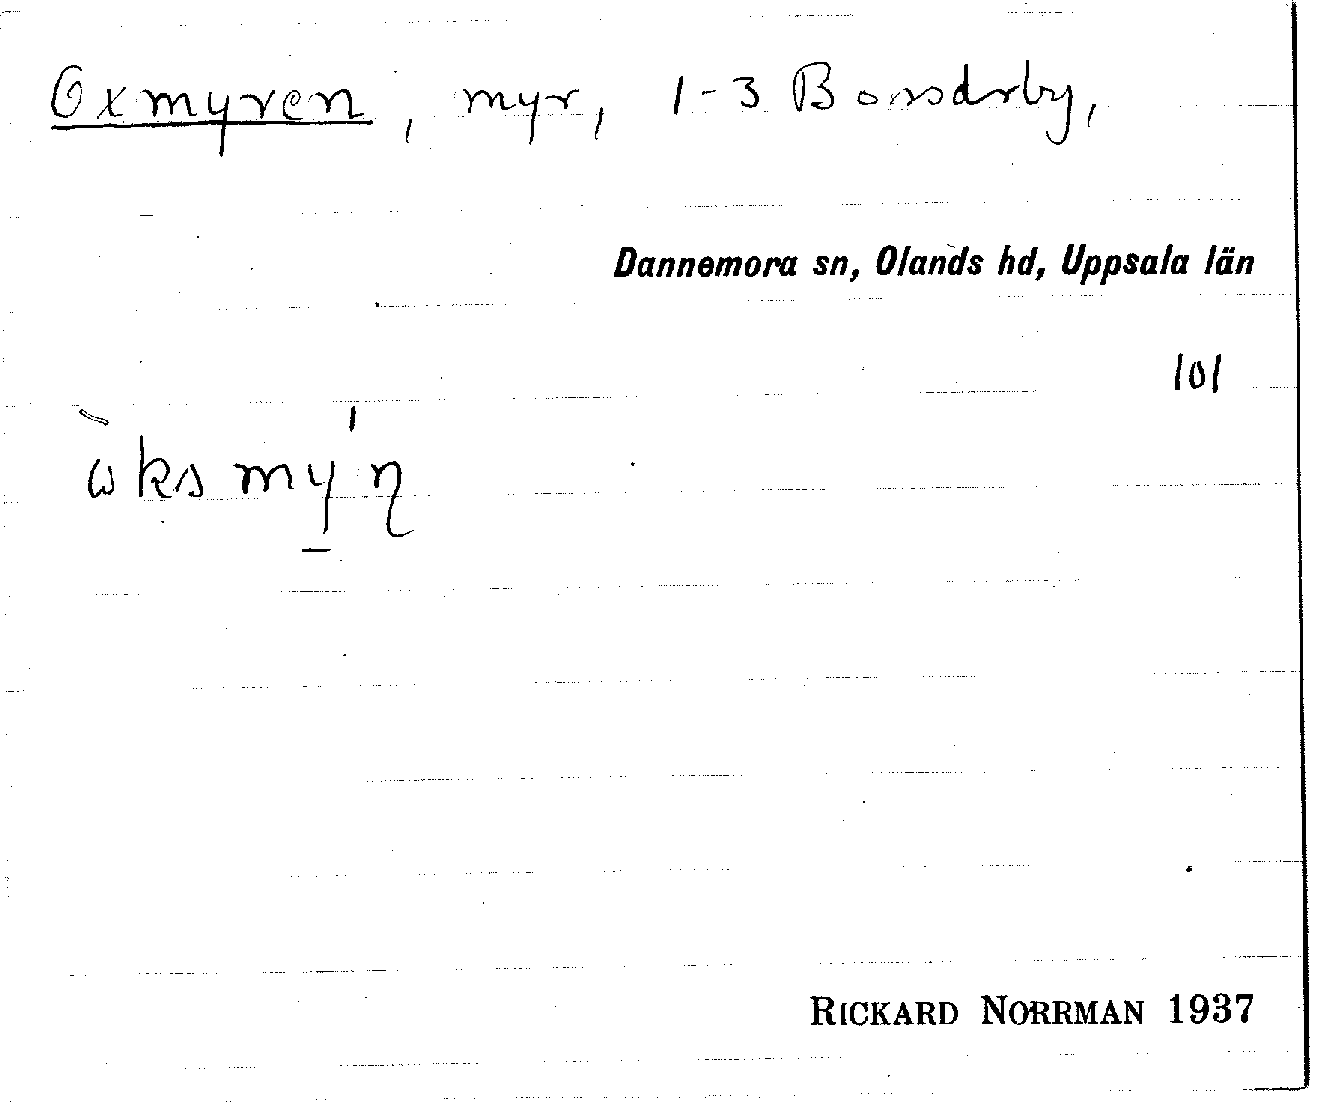 Oxmyren, myr, 1-3 Bonsdrby,
Dannemora sn, Olands hd, Uppsala län
101
ὼksmy̠'ɳ
RICKARD NORRMAN 1937